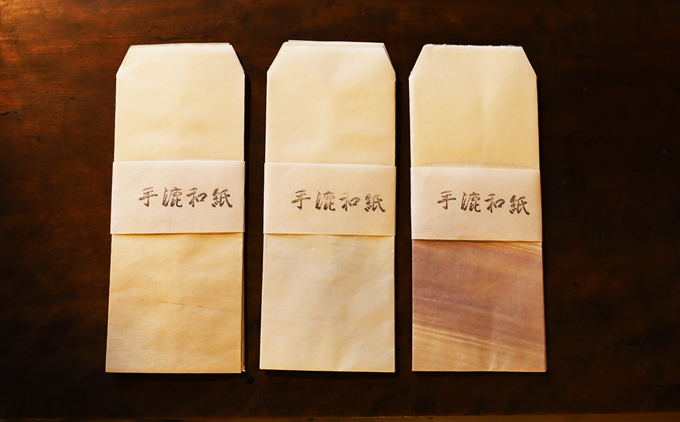 手漉和紙
手漉和紙
手漉和紙